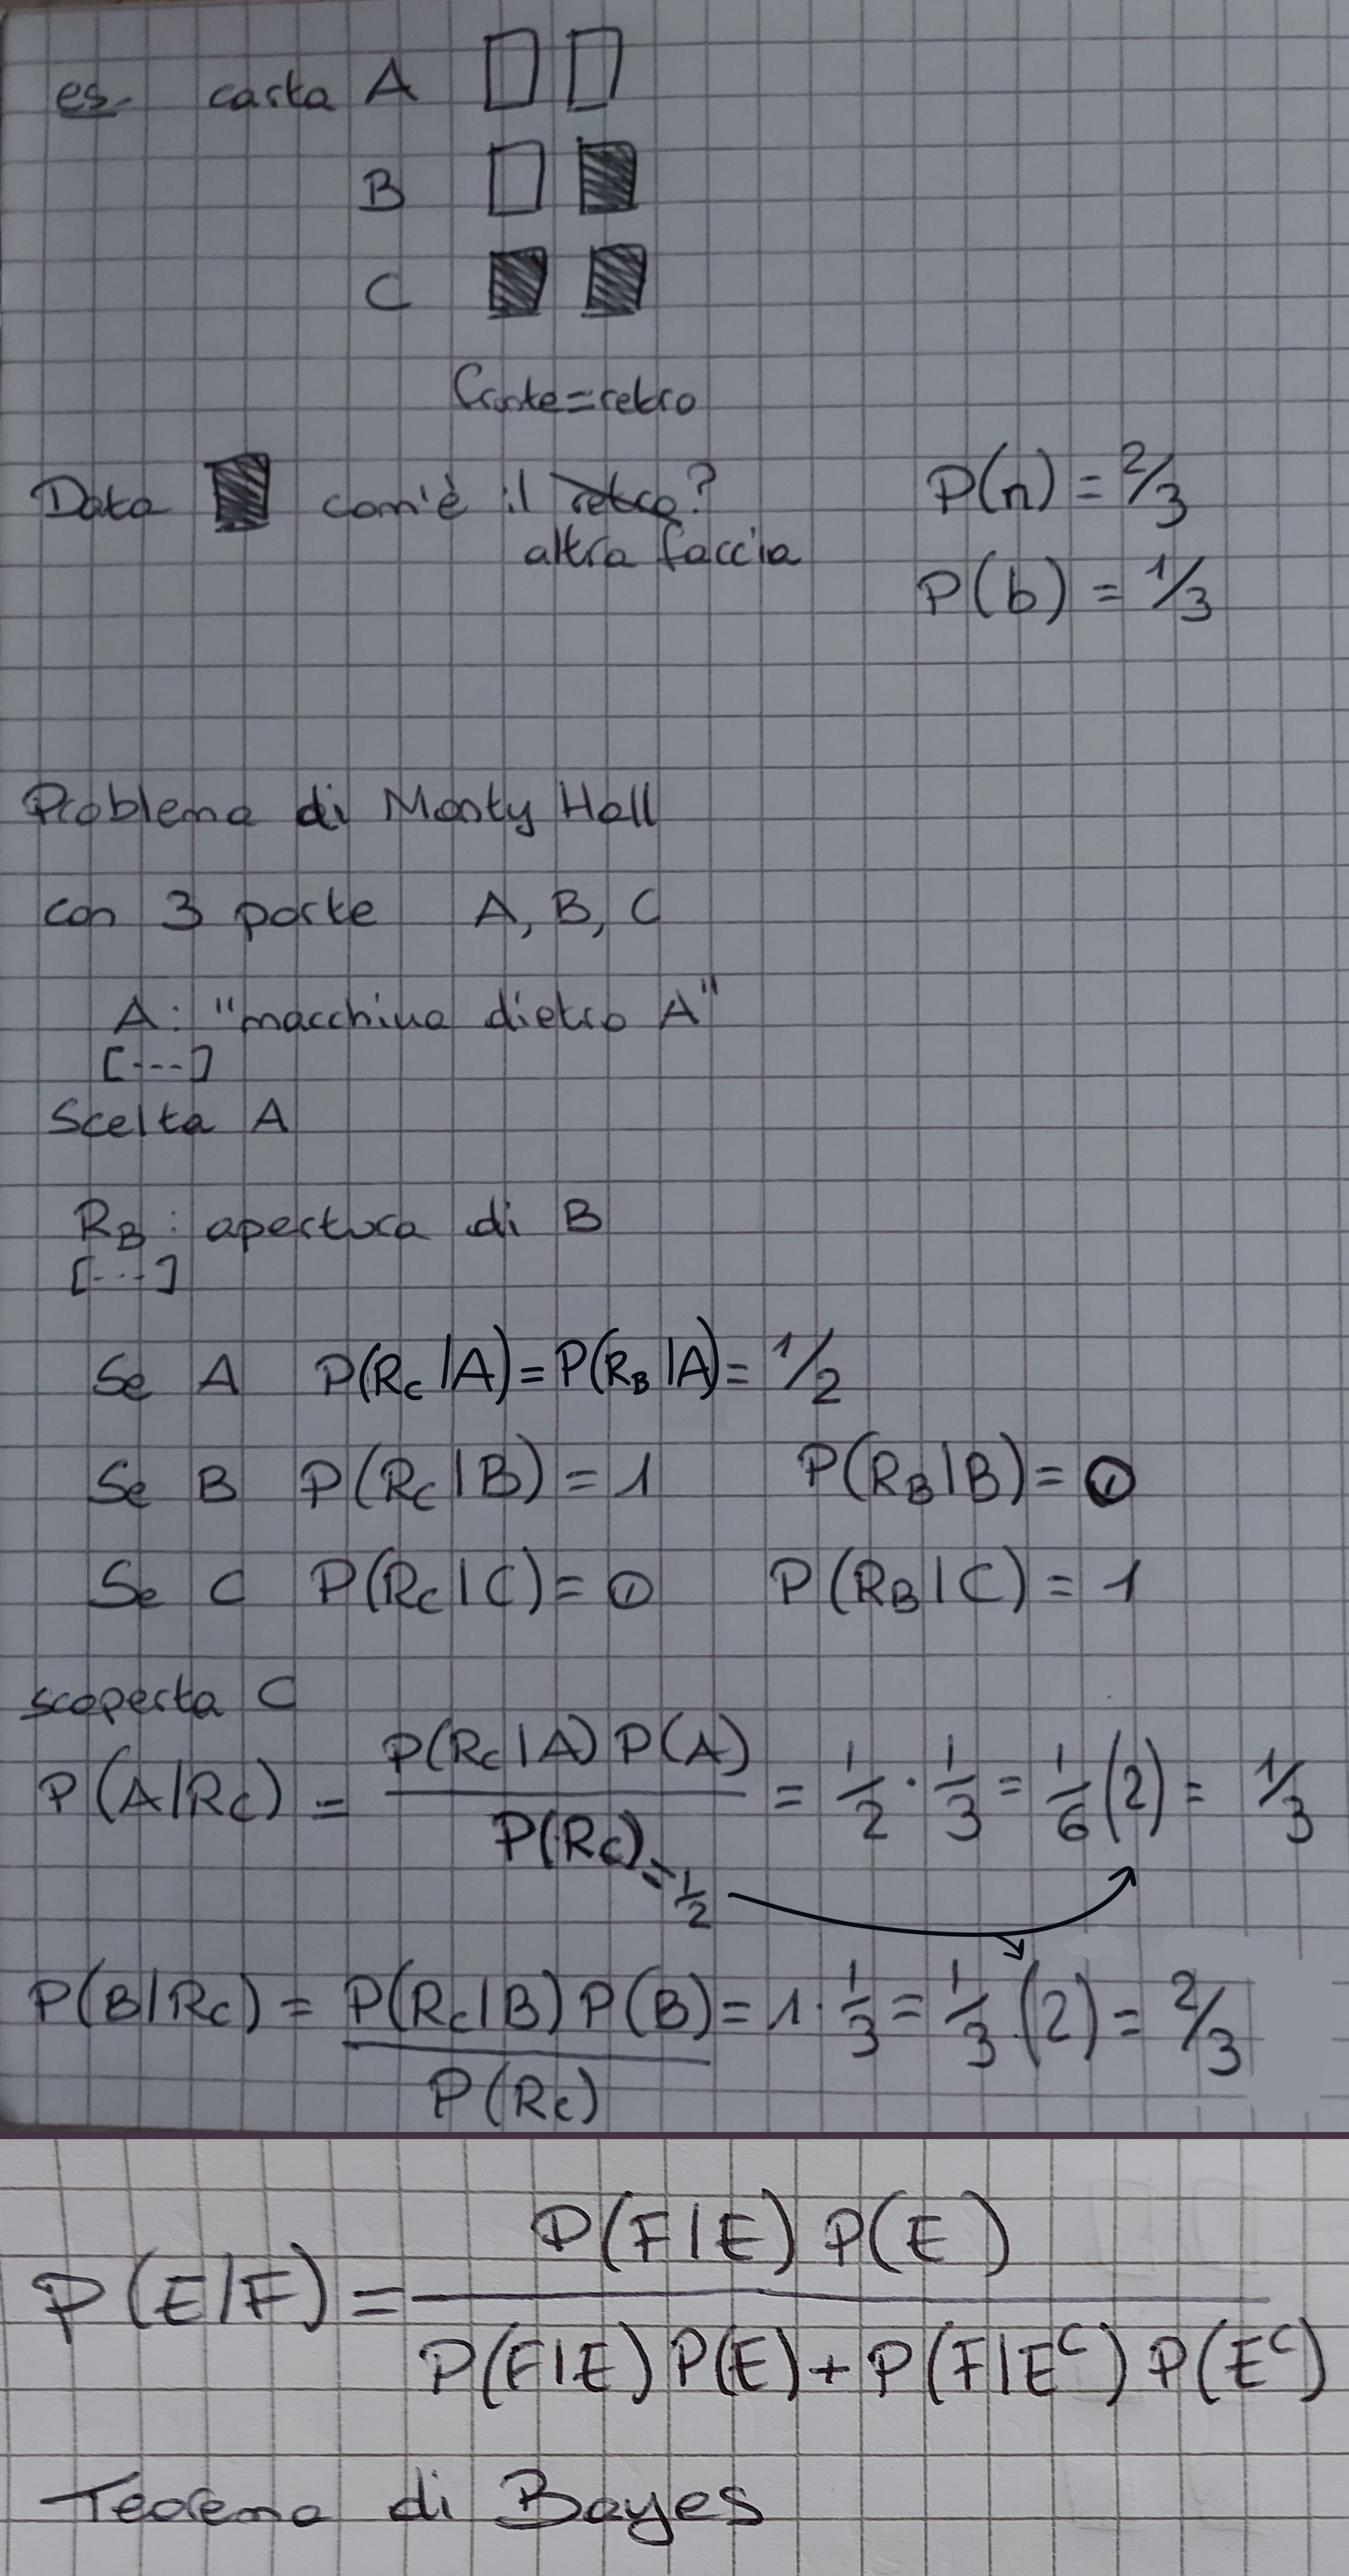 es. carta A
B
C
fronte=retro
Data com'è il retro? P(n) = 2/3
altra faccia
P(b) = 1/3
Problema di Monty Hall
con 3 porte A, B, C
A: "macchina dietro A"
[...]
Scelta A
R_B: apertura di B
[...]
Se A P(R_C|A) = P(R_B|A) = 1/2
Se B P(R_C|B) = 1 P(R_B|B) = 0
Se C P(R_C|C) = 0 P(R_B|C) = 1
scoperta C
P(A|R_C) = P(R_C|A) P(A) / P(R_C) = 1/2 · 1/3 = 1/6 (2) = 1/3
= 1/2
P(B|R_C) = P(R_C|B) P(B) / P(R_C) = 1 · 1/3 = 1/3 (2) = 2/3
P(E|F) = P(F|E) P(E) / P(F|E) P(E) + P(F|E^C) P(E^C)
Teorema di Bayes